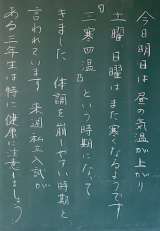 今日明日は昼の気温が上がり
土曜日曜はまた寒くなるようです
「三寒四温」という時期になって
きました 体調を崩しやすい時期と
言われています 来週私立入試が
ある三年生は特に健康に注意しましょう